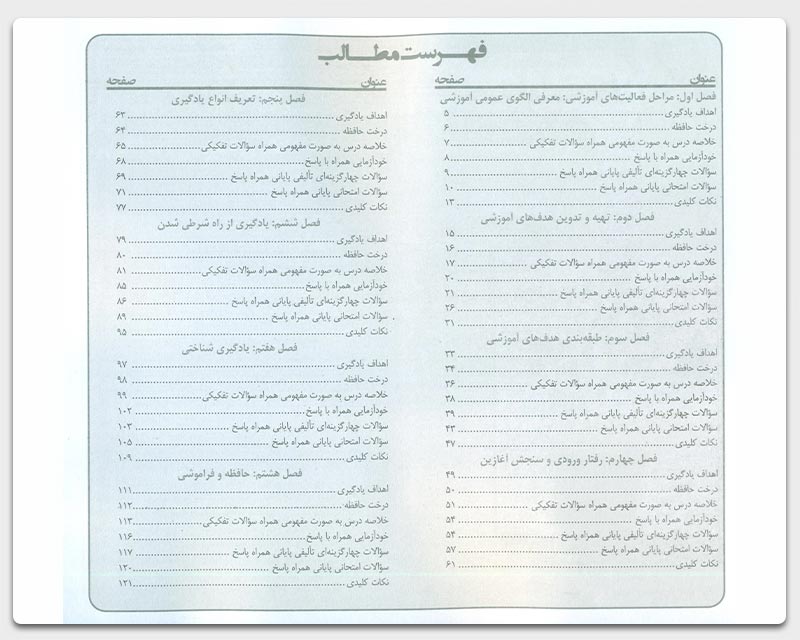 فهرست مطالب
عنوان صفحه
فصل اول: مراحل فعالیت‌های آموزشی: معرفی الگوی عمومی آموزشی
اهداف یادگیری ۵
درخت حافظه ۶
خلاصه درس به صورت مفهومی همراه سؤالات تفکیکی ۷
خودآزمایی همراه با پاسخ ۸
سؤالات چهارگزینه‌ای تألیفی پایانی همراه پاسخ ۹
سؤالات امتحانی پایانی همراه پاسخ ۱۰
نکات کلیدی ۱۳
فصل دوم: تهیه و تدوین هدف‌های آموزشی
اهداف یادگیری ۱۵
درخت حافظه ۱۶
خلاصه درس به صورت مفهومی همراه سؤالات تفکیکی ۱۷
خودآزمایی همراه با پاسخ ۲۰
سؤالات چهارگزینه‌ای تألیفی پایانی همراه پاسخ ۲۱
سؤالات امتحانی پایانی همراه پاسخ ۲۶
نکات کلیدی ۳۱
فصل سوم: طبقه‌بندی هدف‌های آموزشی
اهداف یادگیری ۳۳
درخت حافظه ۳۴
خلاصه درس به صورت مفهومی همراه سؤالات تفکیکی ۳۶
خودآزمایی همراه با پاسخ ۳۸
سؤالات چهارگزینه‌ای تألیفی پایانی همراه پاسخ ۳۹
سؤالات امتحانی پایانی همراه پاسخ ۴۳
نکات کلیدی ۴۷
فصل چهارم: رفتار ورودی و سنجش آغازین
اهداف یادگیری ۴۹
درخت حافظه ۵۰
خلاصه درس به صورت مفهومی همراه سؤالات تفکیکی ۵۱
خودآزمایی همراه با پاسخ ۵۴
سؤالات چهارگزینه‌ای تألیفی پایانی همراه پاسخ ۵۴
سؤالات امتحانی پایانی همراه پاسخ ۵۷
نکات کلیدی ۶۱
عنوان صفحه
فصل پنجم: تعریف انواع یادگیری
اهداف یادگیری ۶۳
درخت حافظه ۶۴
خلاصه درس به صورت مفهومی همراه سؤالات تفکیکی ۶۵
خودآزمایی همراه با پاسخ ۶۸
سؤالات چهارگزینه‌ای تألیفی پایانی همراه پاسخ ۶۹
سؤالات امتحانی پایانی همراه پاسخ ۷۱
نکات کلیدی ۷۷
فصل ششم: یادگیری از راه شرطی شدن
اهداف یادگیری ۷۹
درخت حافظه ۸۰
خلاصه درس به صورت مفهومی همراه سؤالات تفکیکی ۸۱
خودآزمایی همراه با پاسخ ۸۵
سؤالات چهارگزینه‌ای تألیفی پایانی همراه پاسخ ۸۶
سؤالات امتحانی پایانی همراه پاسخ ۸۹
نکات کلیدی ۹۵
فصل هفتم: یادگیری شناختی
اهداف یادگیری ۹۷
درخت حافظه ۹۸
خلاصه درس به صورت مفهومی همراه سؤالات تفکیکی ۹۹
خودآزمایی همراه با پاسخ ۱۰۲
سؤالات چهارگزینه‌ای تألیفی پایانی همراه پاسخ ۱۰۳
سؤالات امتحانی پایانی همراه پاسخ ۱۰۵
نکات کلیدی ۱۰۹
فصل هشتم: حافظه و فراموشی
اهداف یادگیری ۱۱۱
درخت حافظه ۱۱۲
خلاصه درس به صورت مفهومی همراه سؤالات تفکیکی ۱۱۳
خودآزمایی همراه با پاسخ ۱۱۶
سؤالات چهارگزینه‌ای تألیفی پایانی همراه پاسخ ۱۱۷
سؤالات امتحانی پایانی همراه پاسخ ۱۲۰
نکات کلیدی ۱۲۱